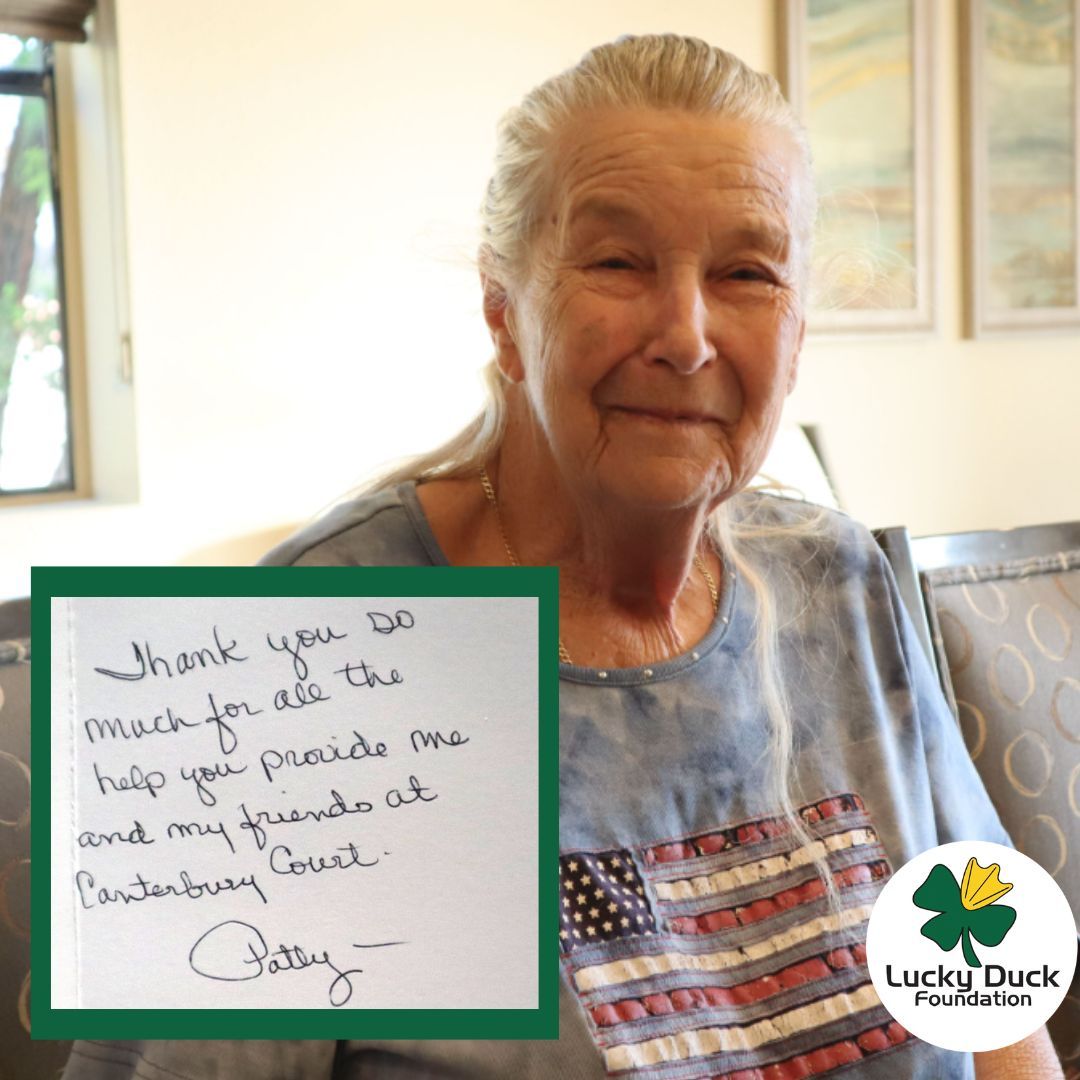 Thank you so
much for all the
help you provide me
and my friends at
Canterbury Court.
Patty —
Lucky Duck
Foundation